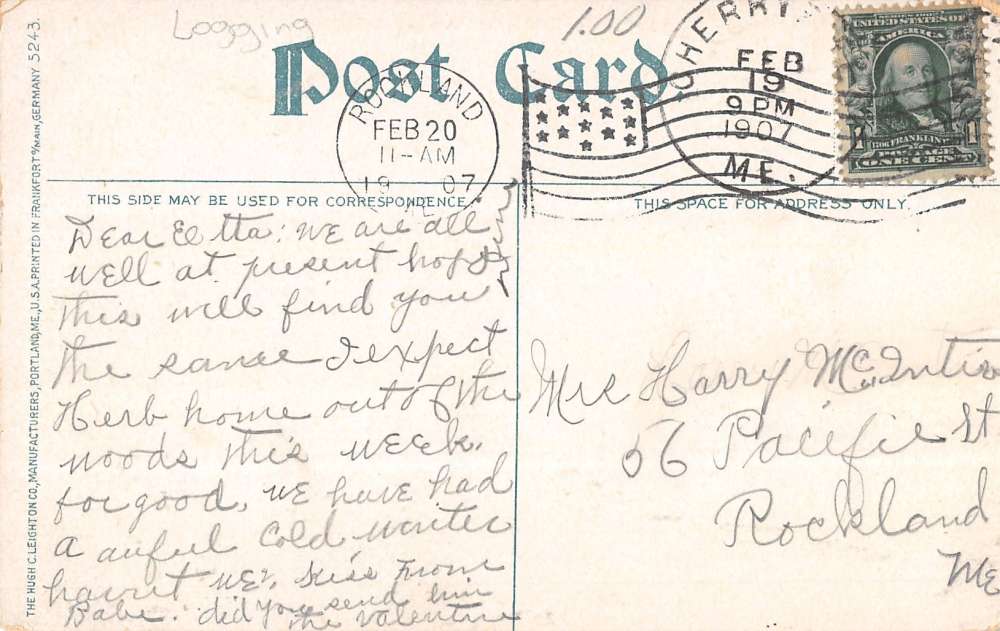 Logging
1.00
Post Card
ROCKLAND
FEB 20
11-AM
19 07
CHERRY
FEB
19
9 PM
1907
ME.
SERIES 1902
UNITED STATES OF
AMERICA
1 1
FRANKLIN
POSTAGE
ONE CENT
THIS SIDE MAY BE USED FOR CORRESPONDENCE
THIS SPACE FOR ADDRESS ONLY.
THE HUGH C. LEIGHTON CO., MANUFACTURERS, PORTLAND, ME., U.S.A. PRINTED IN FRANKFORT o/MAIN, GERMANY 5243.
Dear Etta: we are all
well at present hope
this will find you
the same I expect
Herb home out of the
woods this week.
for good. we have had
a awful cold winter
havent we, kiss from
Babe. did you send him
the valentine
Mrs Harry McIntire
56 Pacific St
Rockland
Me